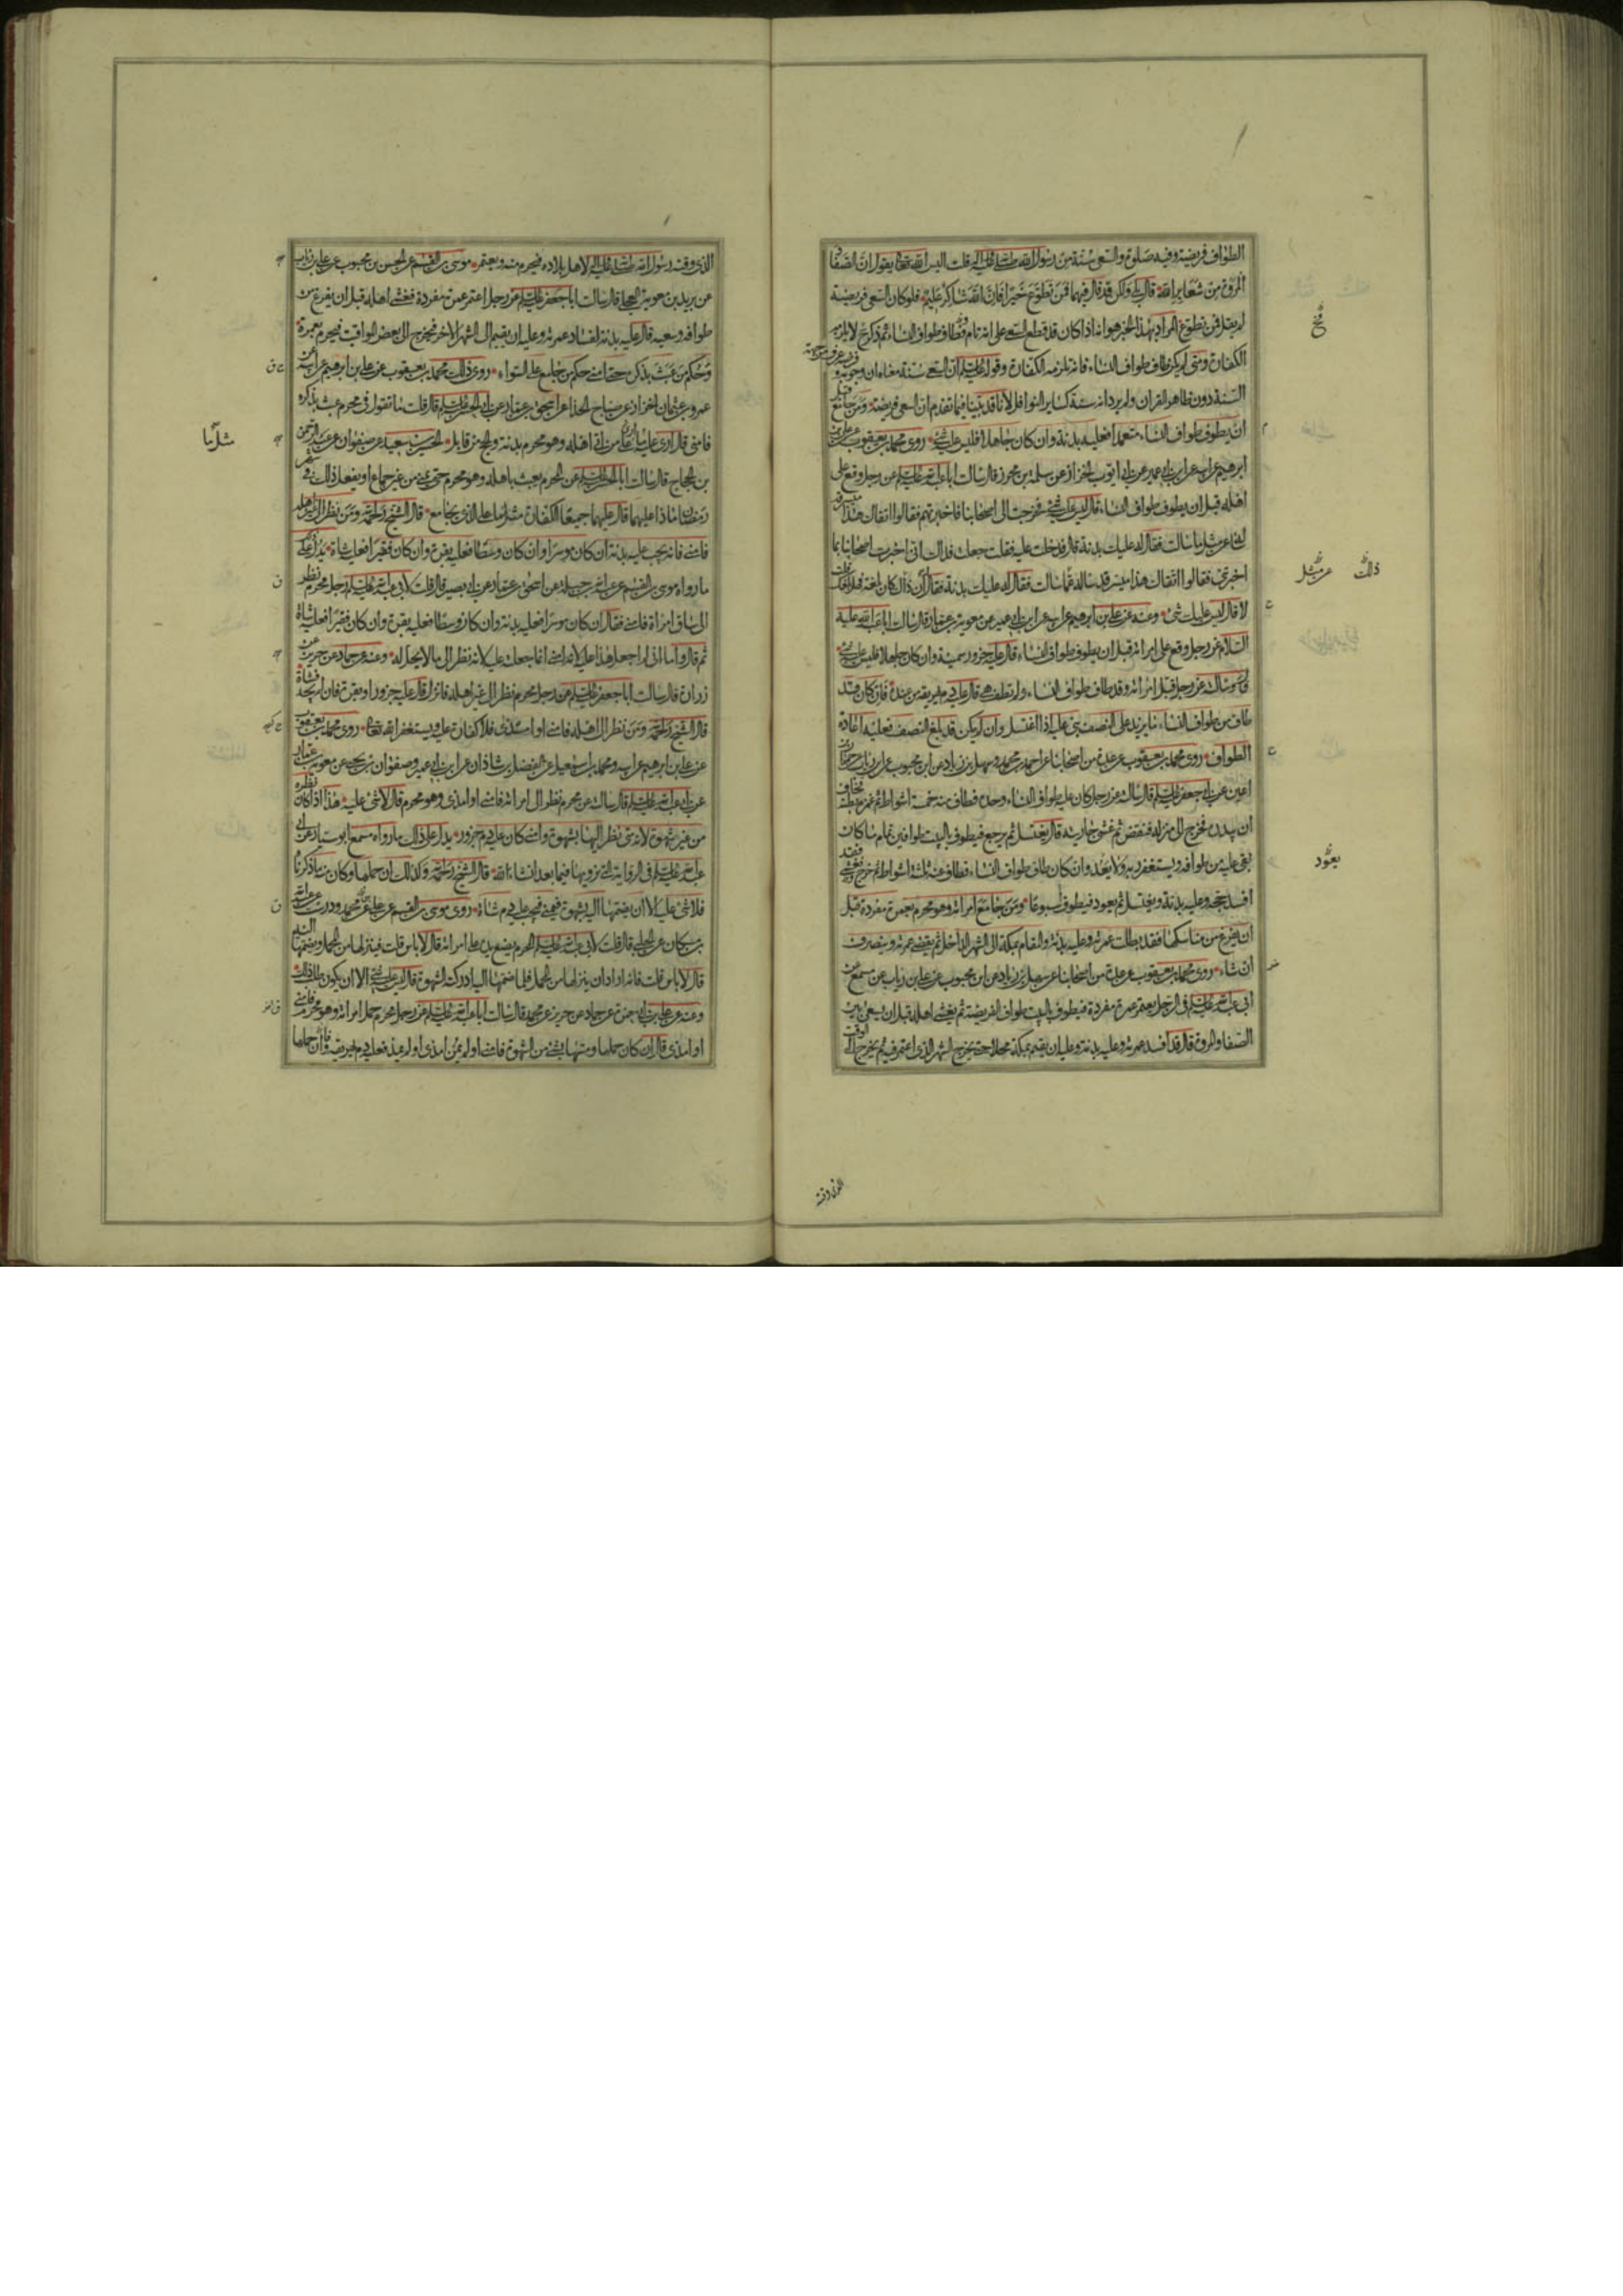 الطواف فريضة وفيه صلوة والسعي سنة من رسول الله صلى الله عليه وآله قلت اليس الله تعالى يقول ان الصفا
والمروة من شعاير الله قال بلى ولكن قد قال فيهما فمن تطوع خيرا فان الله شاكر عليم فلو كان السعي فريضة
لم يقل فمن تطوع المراد بهذا الخبر هو انه اذا كان قد قطع السعي على انه تام فطاف طواف النساء ثم ذكر لا يلزمه
الكفارة ومتى لم يكن طاف طواف النساء فانه تلزمه الكفارة وقوله عليه السلم ان السعي سنة معناه ان وجوبه
السنة دون ظاهر القران ولم يرد انه سنة كساير النوافل لانا قد بينا فيما تقدم ان السعي فريضة ومن جامع قبل
ان يطوف طواف النساء متعمدا فعليه بدنة وان كان جاهلا فليس عليه شيء روى محمد بن يعقوب عن علي بن
ابرهيم عن ابيه عن ابن ابي عمير عن ابي ايوب الخزاز عن سلمة بن محرز قال سالت ابا عبد الله عليه السلم عن رجل وقع على
اهله قبل ان يطوف طواف النساء قال ليس عليه شيء فخرجت الى اصحابنا فاخبرتهم فقالوا اتقاك هذا ميسر قد
سالت فقال له عليك بدنة قال فدخلت عليه فقلت جعلت فداك اني اخبرت اصحابنا بما
اخبرتني فقالوا اتقاك هذا ميسر قد ساله عما سالت فقال له عليك بدنة فقال ان ذاك كان بلغه فهل بلغك قلت
لا قال ليس عليك شيء وعنه عن علي بن ابرهيم عن ابيه عن ابن ابي عمير عن معوية بن عمار قال سالت ابا عبد الله عليه
السلام عن رجل وقع على امراته قبل ان يطوف طواف النساء قال عليه جزور سمينة وان كان جاهلا فليس عليه شيء
قال وسالته عن رجل قبل امراته وقد طاف طواف النساء ولم تطف هي قال عليه دم يهريقه من عنده فان كان قد
طاف من طواف النساء ما يزيد على النصف بنى عليه اذا اغتسل وان لم يكن قد بلغ النصف فعليه اعادة
الطواف روى محمد بن يعقوب عن عدة من اصحابنا عن احمد بن محمد وسهل بن زياد عن ابن محبوب عن ابن رئاب عن حمران بن
اعين عن ابي جعفر عليه السلم قال سالته عن رجل كان عليه طواف النساء وحده فطاف منه خمسة اشواط ثم غمزه بطنه فخاف
ان يبدره فخرج الى منزله فنقض ثم غشى جاريته قال يغتسل ثم يرجع فيطوف بالبيت طوافين تمام ما كان
بقي عليه من طوافه ويستغفر ربه ولا يعد وان كان طاف طواف النساء فطاف منه ثلثة اشواط ثم خرج فغشى فقد
افسد حجه وعليه بدنة ويغتسل ثم يعود فيطوف اسبوعا ومن جامع امراته وهو محرم بعمرة مفردة قبل
ان يفرغ من مناسكها فقد بطلت عمرته وعليه بدنة والمقام بمكة الى الشهر الداخل ثم يقضي عمرته وينصرف
ان شاء روى محمد بن يعقوب عن عدة من اصحابنا عن سهل بن زياد عن ابن محبوب عن علي بن رياب عن مسمع عن
ابي عبد الله عليه السلم في الرجل يعتمر عمرة مفردة فيطوف بالبيت طواف الفريضة ثم يغشى اهله قبل ان يسعى بين
الصفا والمروة قال قد افسد عمرته وعليه بدنة وعليه ان يقيم بمكة محلا حتى يخرج الشهر الذي اعتمر فيه ثم يخرج الى الوقت
صح
ذلك
عن مثل
يعود
الذي وقته
الذي وقته رسول الله صلى الله عليه وآله لاهل بلاده فيحرم منه ويعتمر موسى بن القسم عن الحسن بن محبوب عن علي بن رياب
عن بريد بن معوية العجلي قال سالت ابا جعفر عليه السلم عن رجل اعتمر عمرة مفردة فغشى اهله قبل ان يفرغ من
طوافه وسعيه قال عليه بدنة لفساد عمرته وعليه ان يقيم الى الشهر الاخر فيخرج الى بعض المواقيت فيحرم بعمرة
وحكم من عبث بذكره حتى امنى حكم من جامع على السواء روى ذلك محمد بن يعقوب عن علي بن ابرهيم عن ابيه عن
عمرو بن عثمان الخزاز عن صباح الحذا عن اسحق بن عمار عن ابي الحسن عليه السلم قال قلت ما تقول في محرم عبث بذكره
فامنى قال ارى عليه ما ارى على من اتى اهله وهو محرم بدنة والحج من قابل الحسين بن سعيد عن صفوان عن عبد الرحمن
بن الحجاج قال سالت ابا الحسن عليه السلم عن المحرم يعبث باهله وهو محرم حتى يمني من غير جماع او يفعل ذلك في شهر
رمضان ماذا عليهما قال عليهما جميعا الكفارة مثل ما على الذي يجامع قال الشيخ رحمه الله ومن نظر الى غير اهله
فامنى فانه يجب عليه بدنة ان كان موسرا وان كان وسطا فعليه بقرة وان كان فقيرا فعليه شاة يدل على
ما رواه موسى بن القسم عن عبد الله بن جبلة عن اسحق بن عمار عن ابي بصير قال قلت لابي عبد الله عليه السلم رجل محرم نظر
الى ساق امراة فامنى فقال ان كان موسرا فعليه بدنة وان كان وسطا فعليه بقرة وان كان فقيرا فعليه شاة
ثم قال واما اني لم اجعل هذا عليه لانه امنى انما جعلته عليه لانه نظر الى ما لا يحل له وعنه عن حماد عن حريز عن
زرارة قال سالت ابا جعفر عليه السلم عن رجل محرم نظر الى غير اهله فانزل قال عليه جزور او بقرة فان لم يجد فشاة
قال الشيخ رحمه الله ومن نظر الى اهله فامنى او امذى فلا كفارة عليه ويستغفر الله تعالى روى محمد بن يعقوب
عن علي بن ابرهيم عن ابيه ومحمد بن اسمعيل عن الفضل بن شاذان عن ابن ابي عمير وصفوان بن يحيى عن معوية بن عمار
عن ابي عبد الله عليه السلم قال سالته عن محرم نظر الى امراته فامنى او امذى وهو محرم قال لا شيء عليه هذا اذا كان نظره
من غير شهوة لانه متى نظر اليها بشهوة وامنى كان عليه دم جزور يدل على ذلك ما رواه مسمع ابو سيار عن ابي
عبد الله عليه السلم في الرواية التي نرويها فيما بعد ان شاء الله قال الشيخ رحمه الله وكذلك ان حملها وكان منه ما ذكرنا
فلا شيء عليه الا ان يضمها اليه بشهوة فيمني فيجب عليه دم شاة روى موسى بن القسم عن علي عن محمد ودرست عن عبد الله
بن مسكان عن الحلبي قال قلت لابي عبد الله عليه السلم المحرم يضع يده على امراته قال لا باس قلت فينزلها من المحمل ويضمها اليه
قال لا باس قلت فانه اراد ان ينزلها من المحمل فلما ضمها اليه ادركته الشهوة قال ليس عليه شيء الا ان يكون طلب ذلك
وعنه عن علي بن ابي حمزة عن حماد عن حريز عن محمد قال سالت ابا عبد الله عليه السلم عن رجل محرم حمل امراته وهو محرم فامنى
او امذى قال ان كان حملها ومسها بشيء من الشهوة فامنى او لم يمن امذى او لم يمذ فعليه دم يهريقه وان حملها
مثل ما